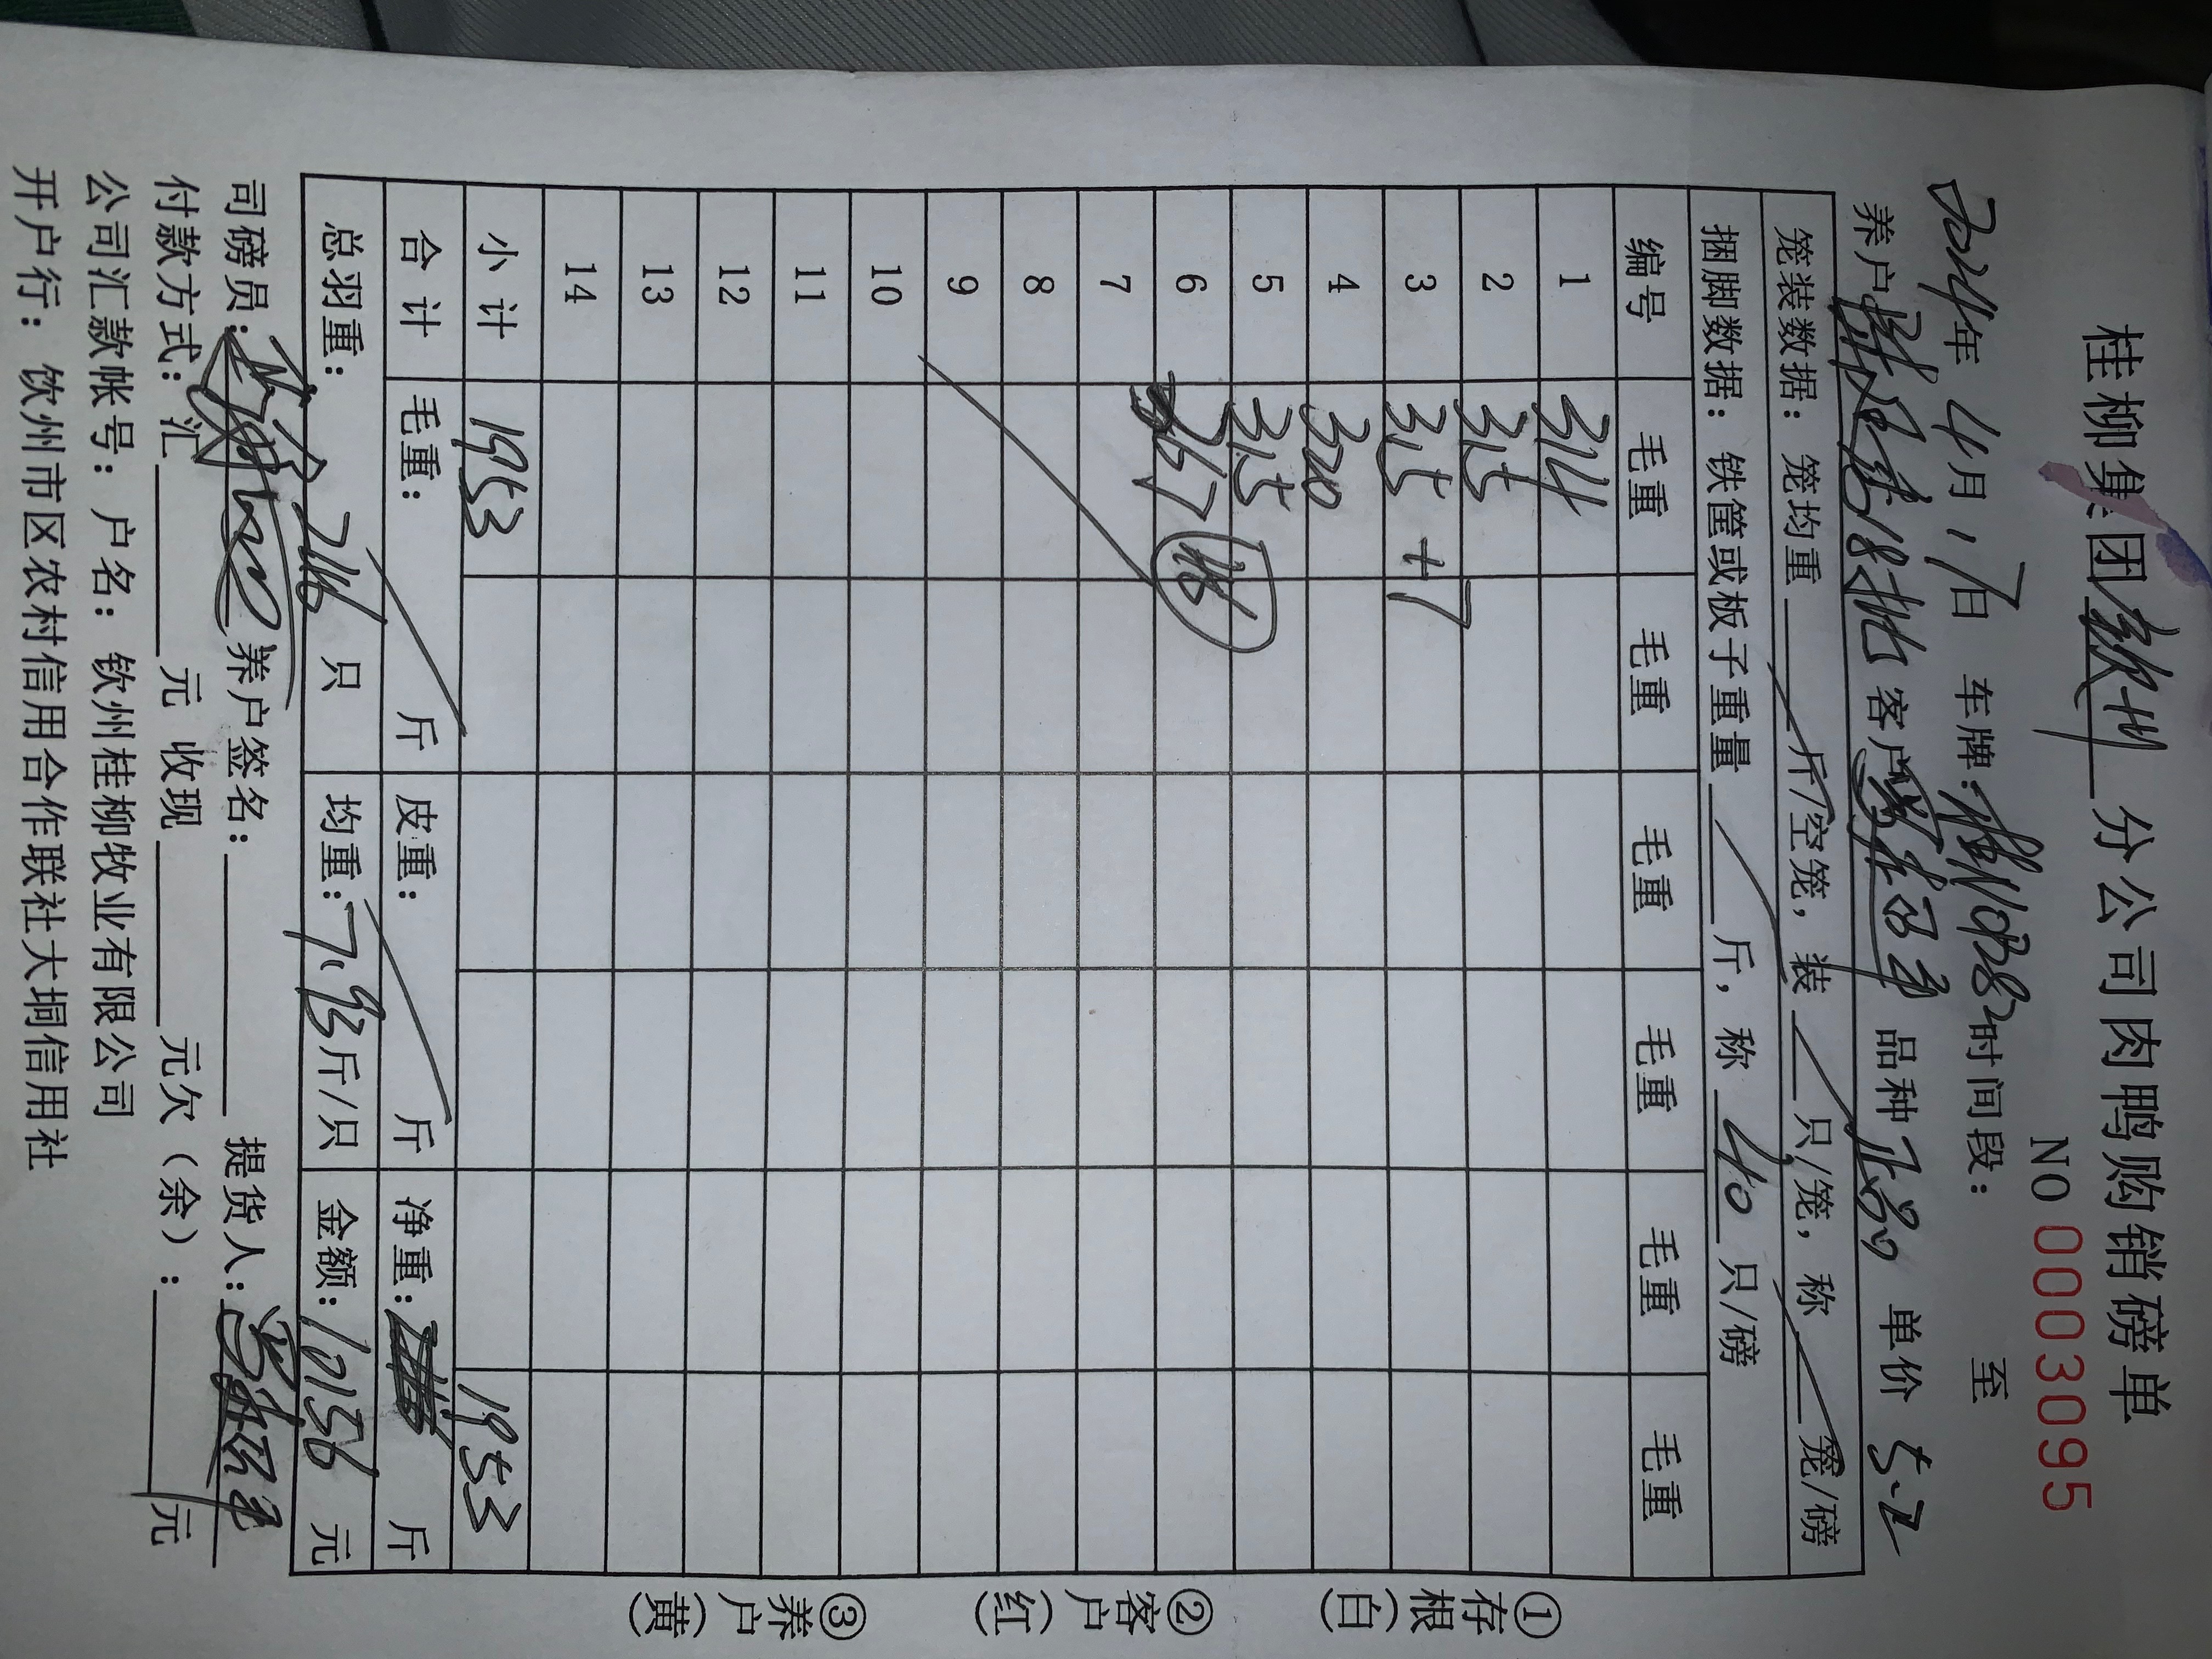 桂柳集团 钦州 分公司肉鸭购销磅单
NO 0003095
2024年 4月 17日 车牌: 时间段: 至
养户 18批 客户 品种 正品 单价 5.2
笼装数据: 笼均重 斤/空笼, 装 只/笼, 称 笼/磅
捆脚数据: 铁筐或板子重量 斤, 称 40 只/磅
编号 毛重 毛重 毛重 毛重 毛重 毛重
1 314
2 315
3 315 +7
4 320
5 315
6 367 46
7
8
9
10
11
12
13
14
小计 1953 1953
合计 毛重: 斤 皮重: 斤 净重: 斤
总羽重: 246 只 均重: 7.93 斤/只 金额: 10156 元
司磅员: 养户签名: 提货人:
付款方式: 汇 元 收现 元欠(余): 元
公司汇款帐号: 户名: 钦州桂柳牧业有限公司
开户行: 钦州市区农村信用合作联社大垌信用社
①存根(白)
②客户(红)
③养户(黄)